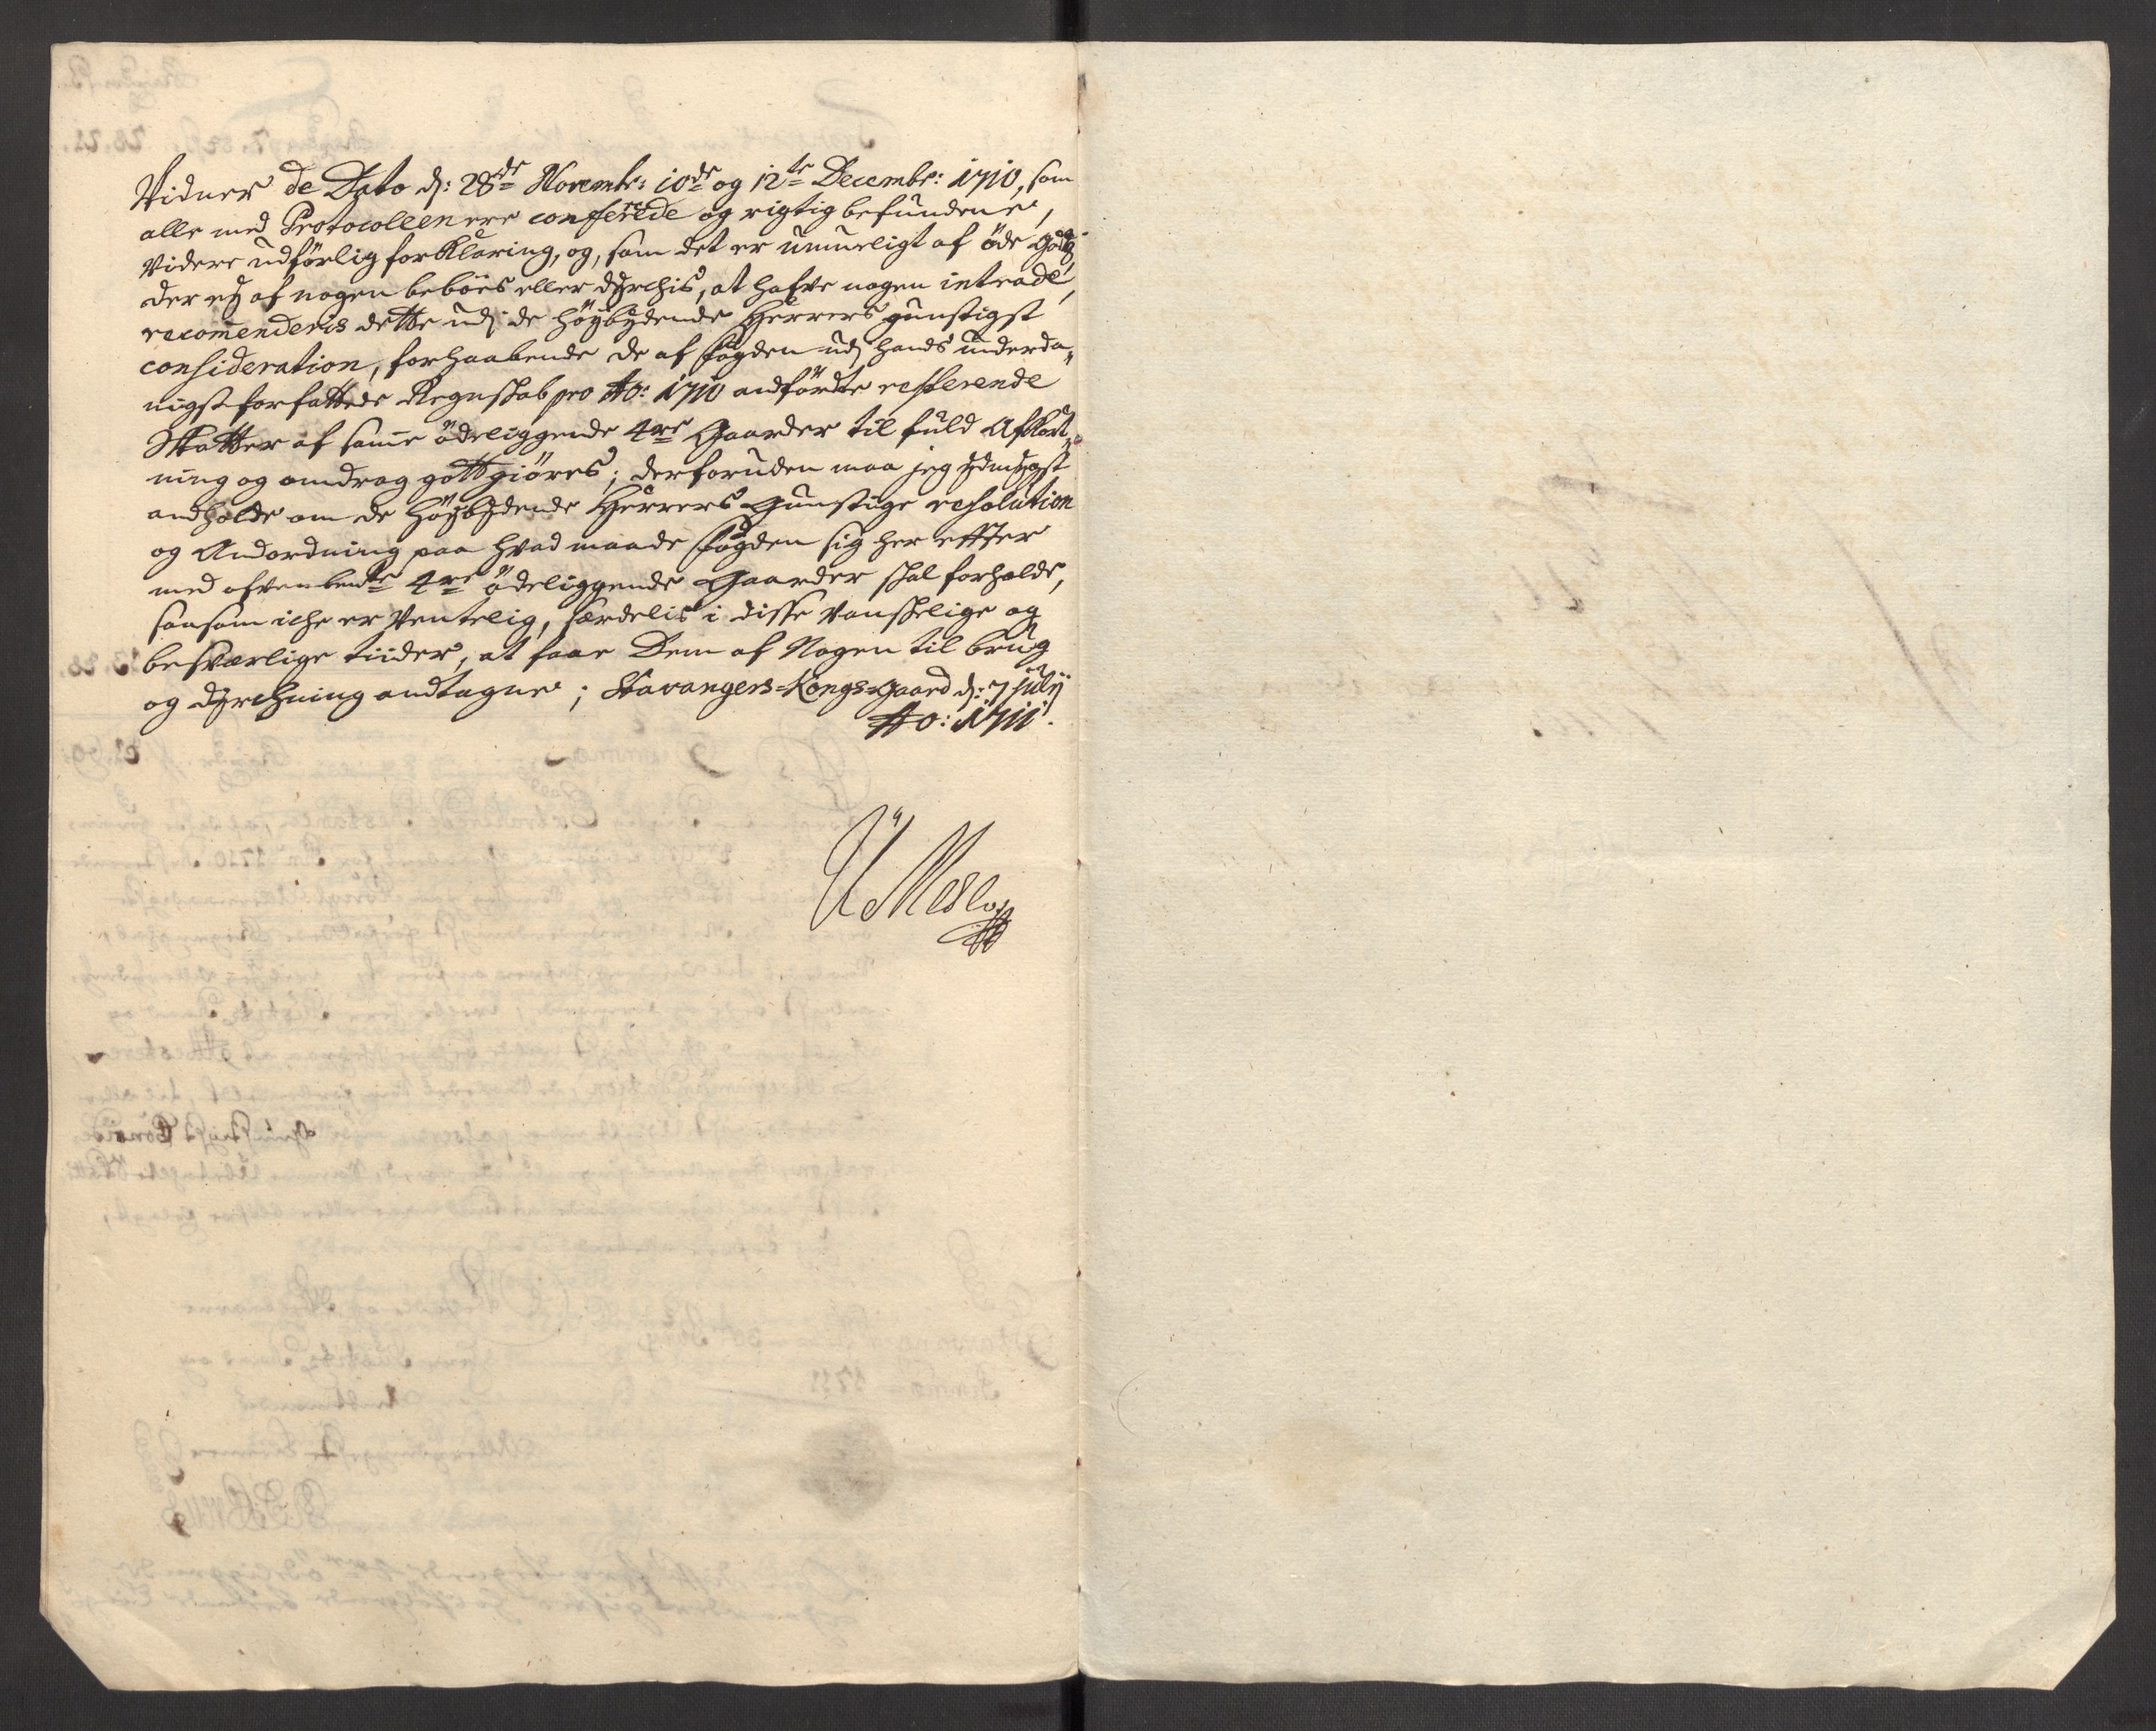 Vidner de Dato d: 28de Novembr: 10de og 12te Decembr: 1710, som
alle med Protocollen ere confererede og rigtig befundene,
Videre udförlig forKlaring, og, som det er umueligt af öde godtz
der ey af nogen beböes eller dyrchis, at hafve nogen intrade,
recommenderis dette udj de höybydende Herrers gunstigst
consideration, forhaabende de af fogden udj hands underda„
nigst forfattede Regnskab pro Ao: 1710 andförte resterende
Skatter af samme ödeliggende 4re Gaarder til fuld Afkort„
ning og andrag gottgiöres; derforuden maa jeg ydmygst
andholde om de höybydende Herrers Gunstige resolution
og Andordning paa hvad maade fogden sig her effter
med ofvenbemte 4re ödeliggende Gaarder skal forholde,
saasom iche er Ventelig, særdelis i disse vanskelige og
besværlige tiider, at faae Dem af Nogen til brug
og dyrchning andtagne; Stavangers=Kongs=gaard d: 7 julij
Ao: 1711.